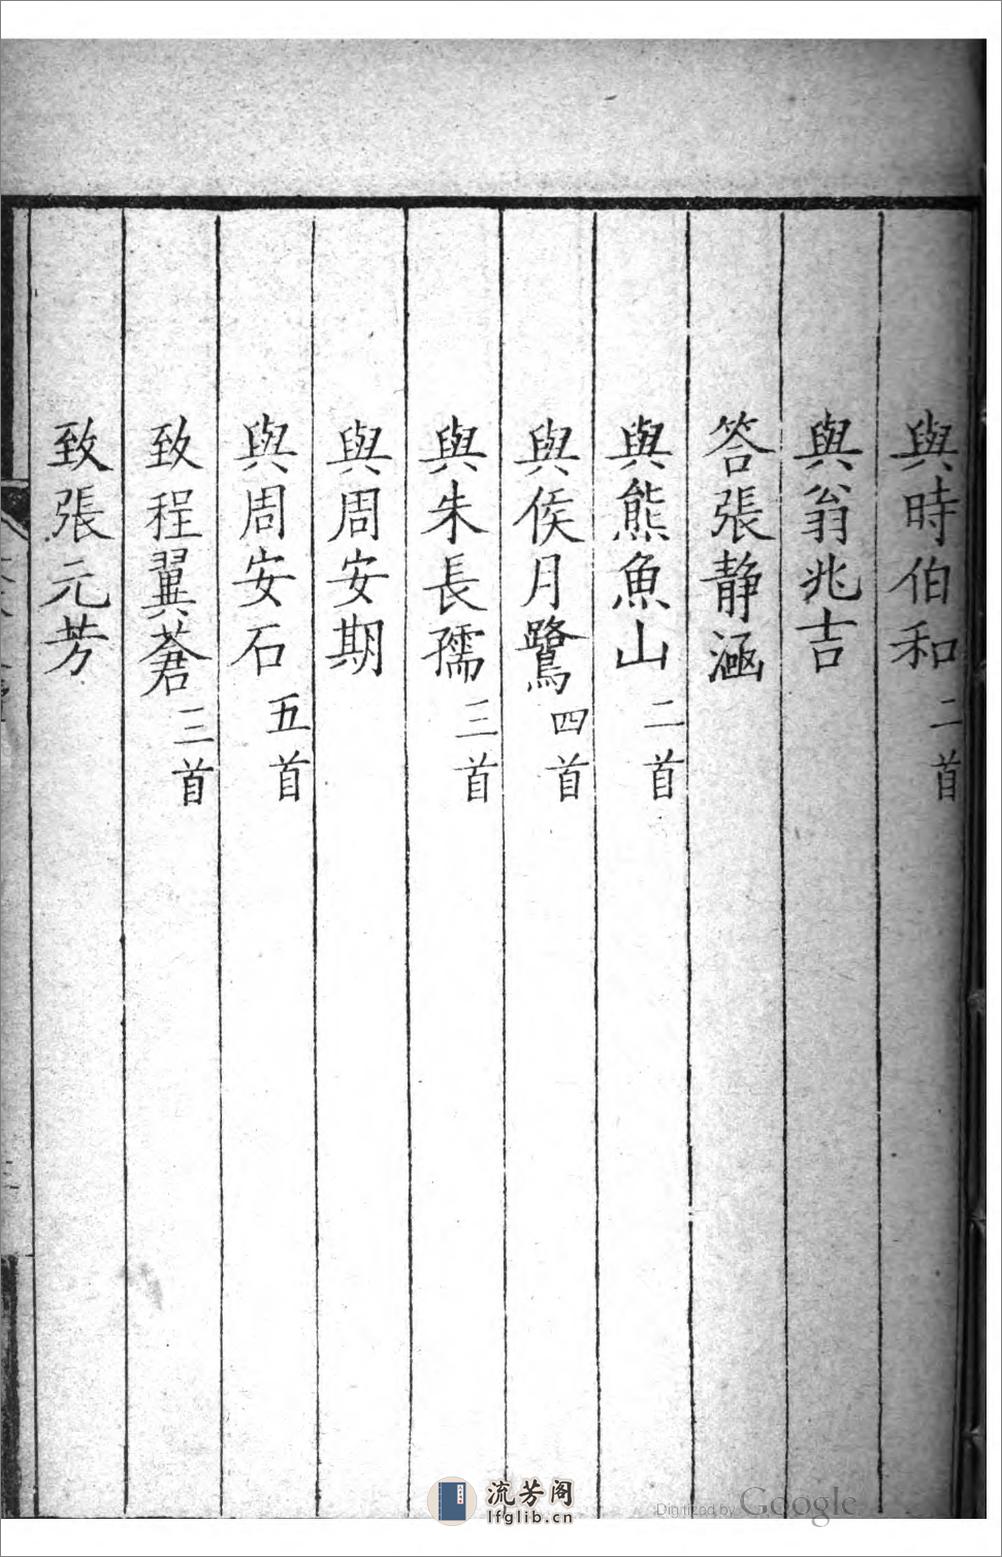 與時伯和二首
與翁兆吉
答張静涵
與熊魚山二首
與侯月鷺四首
與朱長孺三首
與周安期
與周安石五首
致程翼蒼三首
致張元芳
流芳阁
lfglib.cn
Digitized by Google